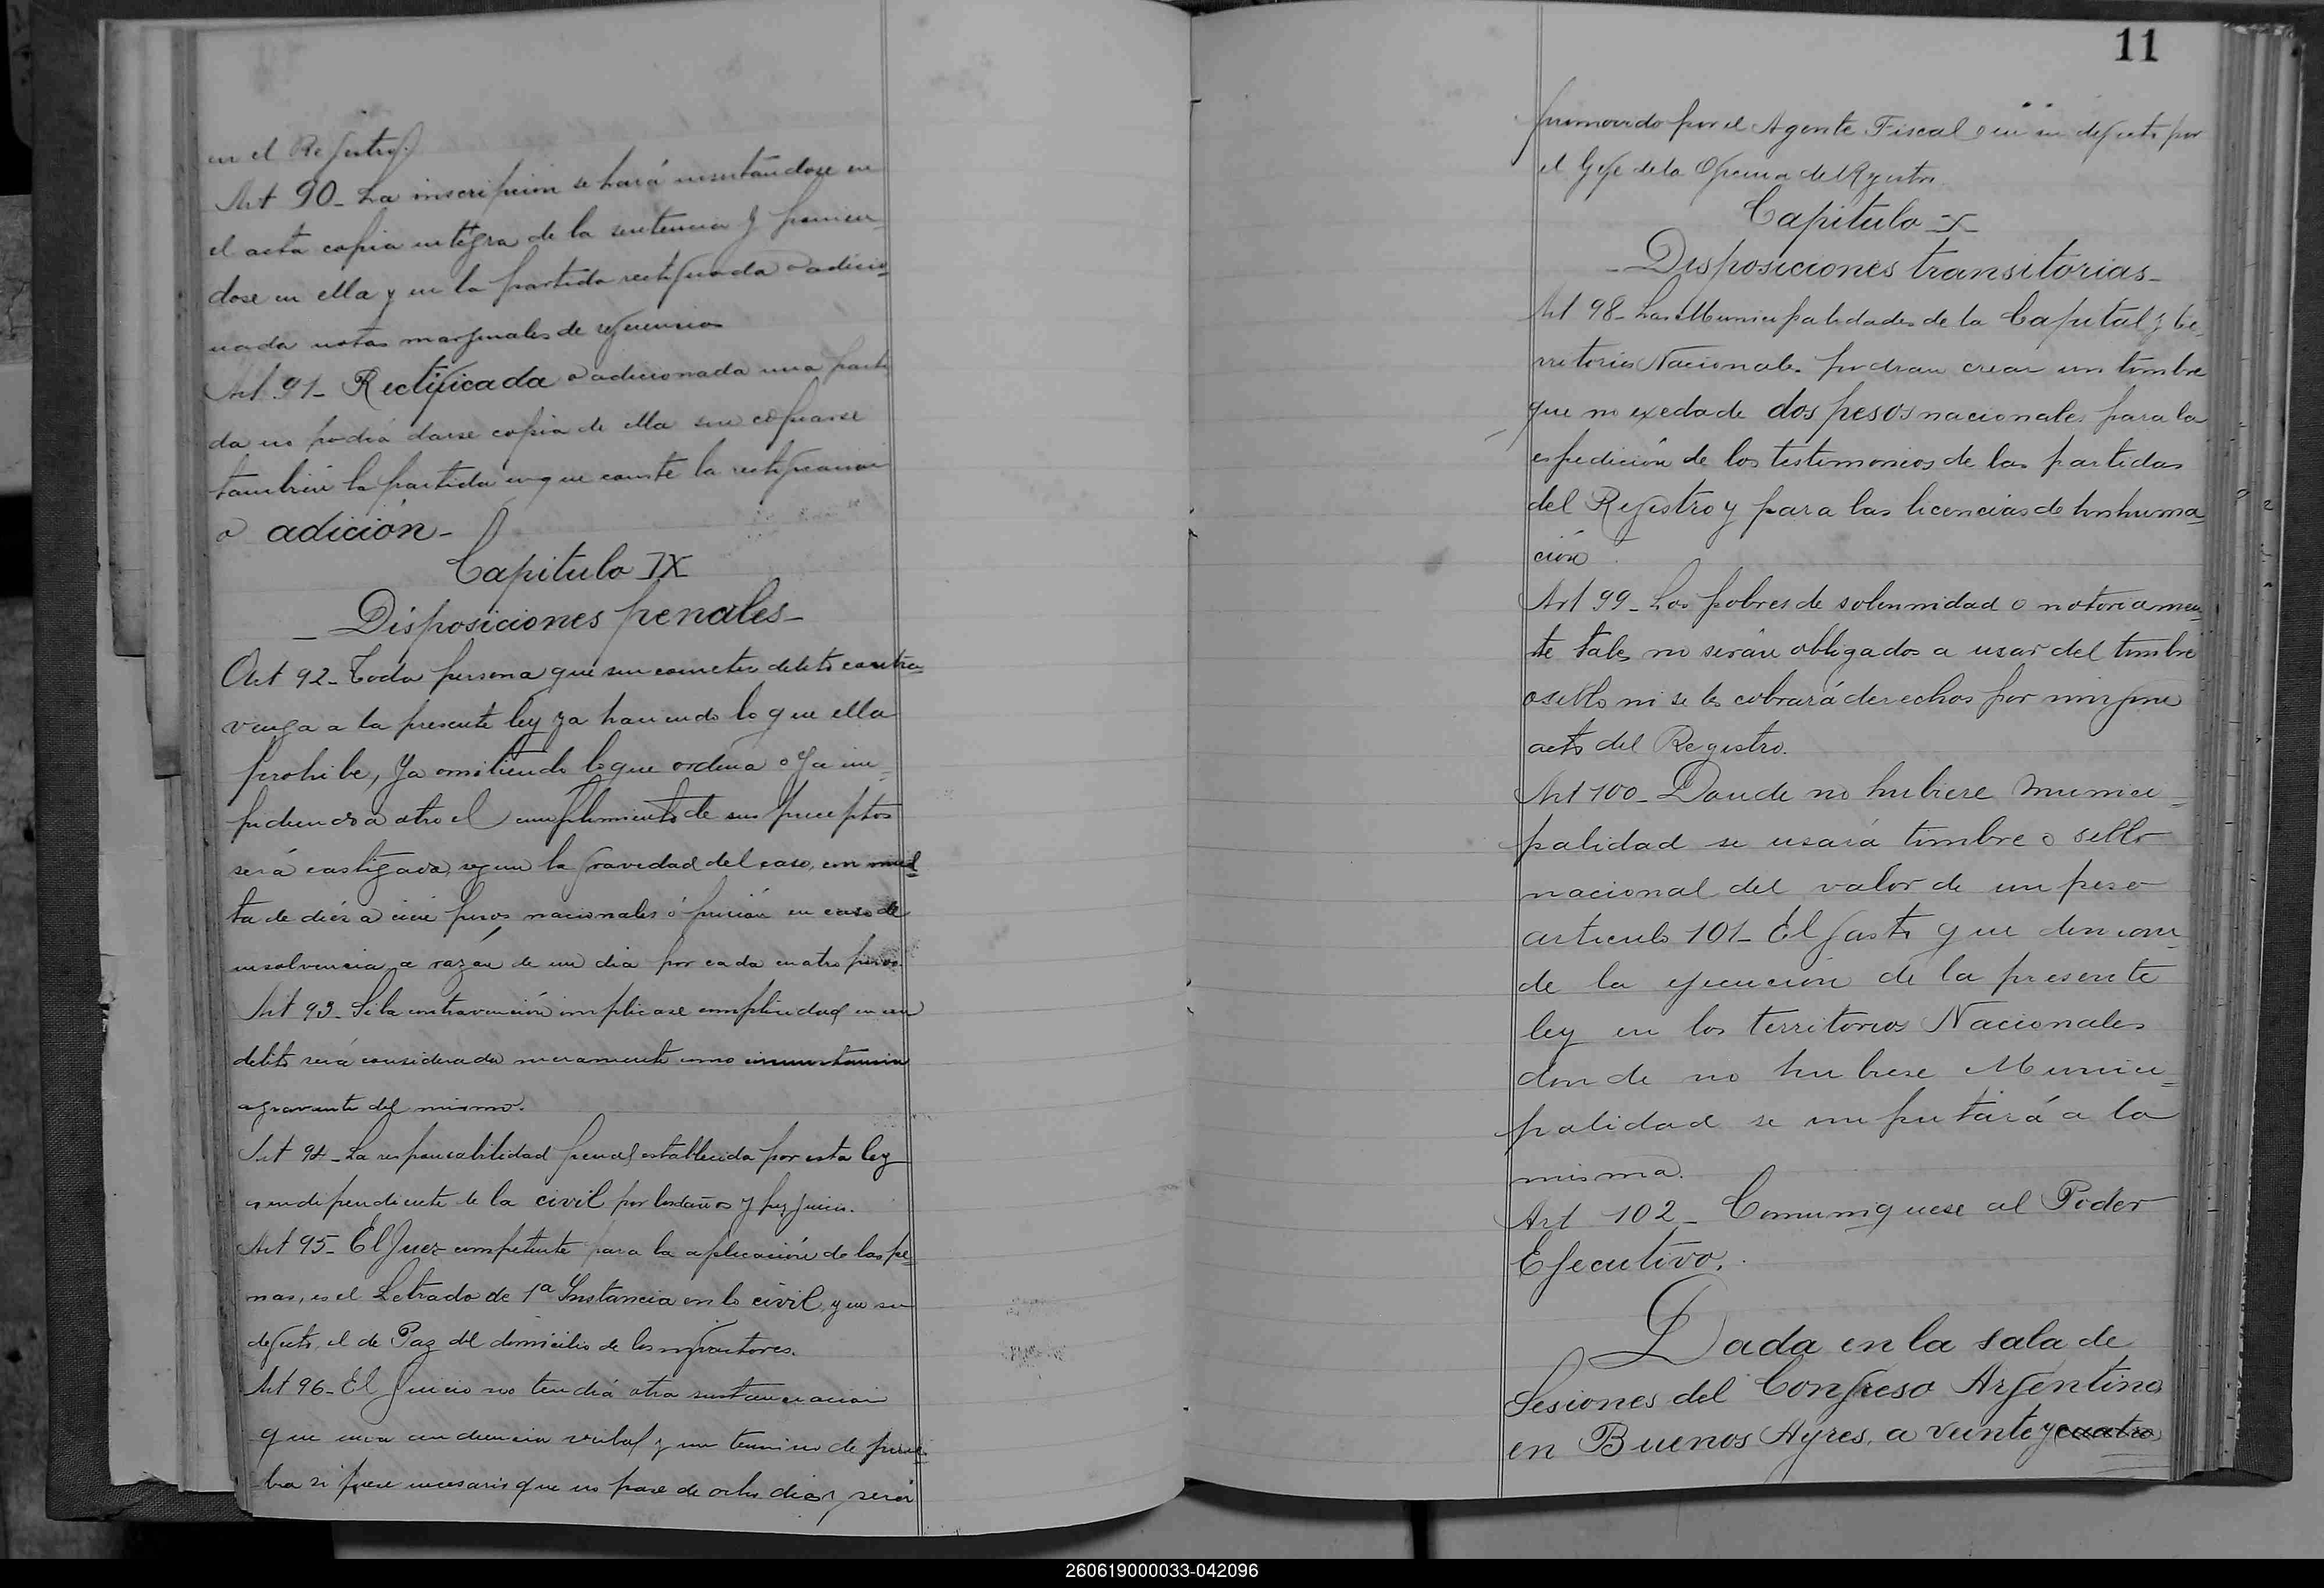 en el Registro.
Art 90_ La inscripcion se hará insertandose en
el acta copia integra de la sentencia y ponien-
dose en ella y en la partida rectificada o adicio-
nada notas marginales de referencias
Art. 91_ Rectificada o adicionada una parti
da no podrá darse copia de ella sin copiarse
también la partida en que conste la rectificacion
o adición_
Capitulo IX
_ Disposiciones penales_
Art 92_ Toda persona que sin cometer delito contra-
venga a la presente ley ya haciendo lo que ella
prohibe, ya omitiendo lo que ordena o ya im-
pidiendo a otro el cumplimiento de sus preceptos
será castigada segun la gravedad del caso, con mul-
ta de diéz a cien pesos nacionales ó prisión en caso de
insolvencia a razón de un dia por cada cuatro pesos.
Art 93_ Si la contravención implicase complicidad en un
delito será considerada meramente como circunstancia
agravante del mismo.
Art 94_ La responsabilidad penal establecida por esta ley
es independiente de la civil por los daños y perjuicios.
Art 95_ El Juez competente para la aplicación de las pe-
nas, es el Letrado de 1ª Instancia en lo civil, y en su
defecto, el de Paz del domicilio de los infractores.
Art 96_ El Juicio no tendrá otra sustanciacion
que una audiencia verbal y un termino de prue-
ba si fuese necesario que no pase de ocho dias y será
11
promovido por el Agente Fiscal o en su defecto por
el Gefe de la Oficina del Registro
Capitulo X
_ Disposiciones transitorias_
Art 98_ Las Municipalidades de la Capital y te-
rritorios Nacionales podran crear un timbre
que no exeda de dos pesos nacionales para la
espedición de los testimonios de las partidas
del Registro y para las licencias de inhuma-
ción
Art 99_ Los pobres de solemnidad o notoriamen-
te tales no serán obligados a usar del timbre
o sello ni se les cobrará derechos por ningun
acto del Registro.
Art 100_ Donde no hubiere Munici-
palidad se usará timbre o sello
nacional del valor de un peso
articulo 101_ El gasto que deman-
de la ejecución de la presente
ley en los territorios Nacionales
donde no hubiese Munici-
palidad se imputará a la
misma.
Art 102_ Comuniquese al Poder
Ejecutivo.
Dada en la sala de
Sesiones del Congreso Argentino
en Buenos Ayres, a veinte y cuatro
260619000033-042096